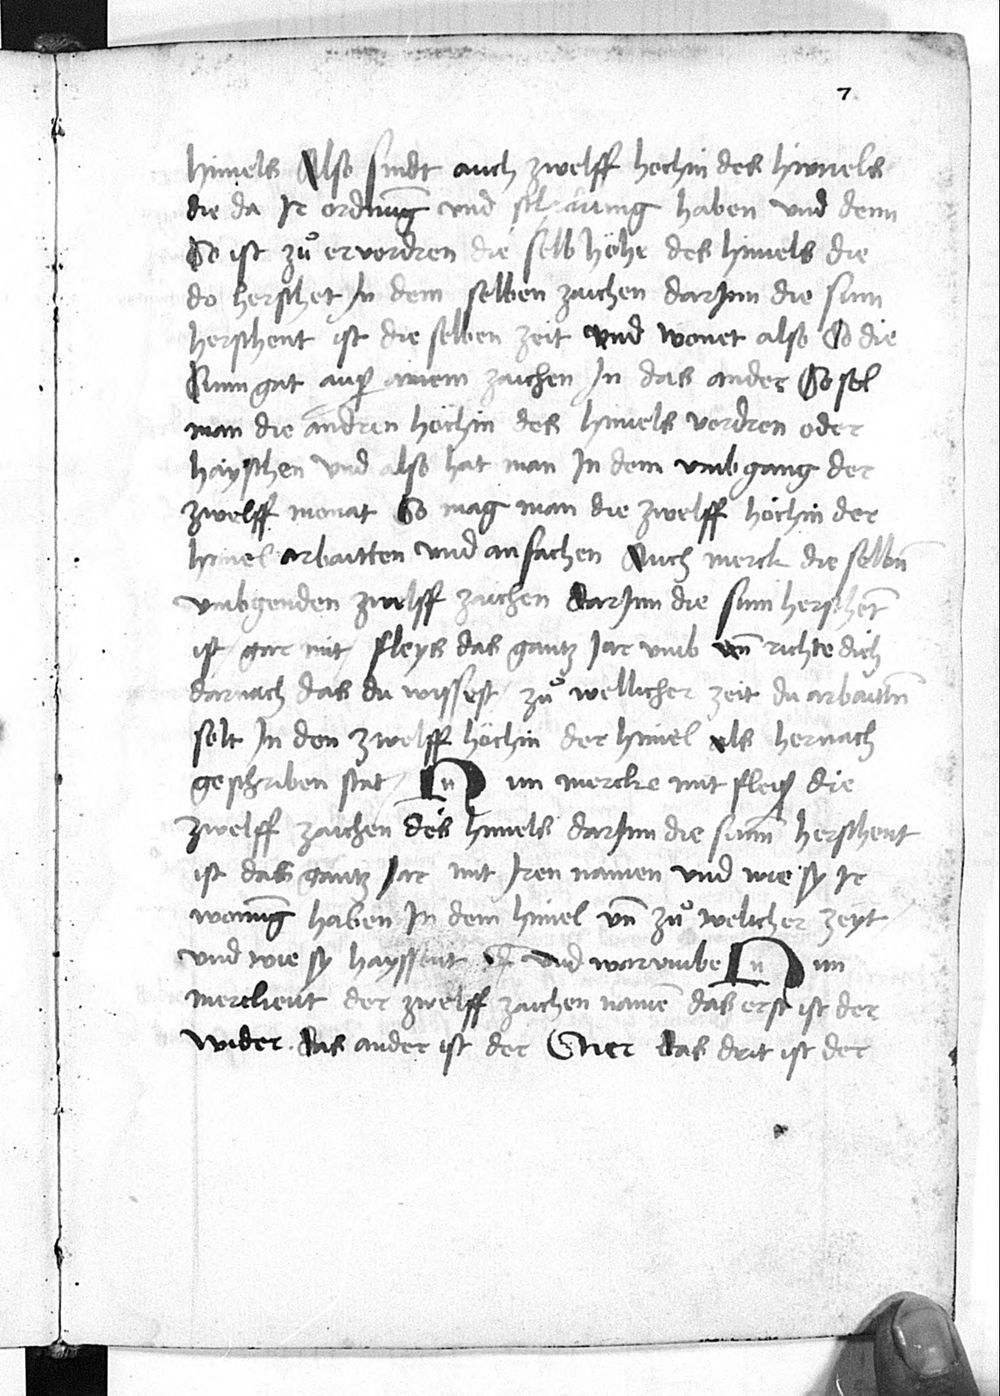 7
himels Also sindt auch zwelff hochin des himels
die da Ir ordnung vnd haben vnd denn
So ist zuͦ ervordren die selb höhe des himels die
do herschet In dem selben zaichen darInn die sunn
herschent ist die selben zeit vnd wonet also So die
Sunn gat auß ainem zaichen In das ander So sol
man die andren höchin des himels vordren oder
hayschen vnd also hat man In dem vmbgang der
zwelff monat So mag man die zwelff höchin der
himel arbaitten vnd an fachen Auch merck die selbn̄
vmbgenden zwelff zaichen darInn die sunn herschet̄
ist gar mit fleys das gantz Jar vmb vn̄ richte dich
darnach das du wissest zuͦ wellicher zeit du arbaittn̄
solt In den zwelff höchin der himel als hernach
geschriben stat Nun mercke mit fleiß die
zwelff zaichen des himels darInn die sunn herschent
ist das gantz Jar mit Iren namen vnd wie sy Ir
wonung haben In dem himel vn̄ zuͦ welicher zeyt
vnd wie sy hayssent vnd warvmbe Nun
merckent der zwelff zaichen namē das erst ist der
wider. das ander ist der Stier das drit ist der